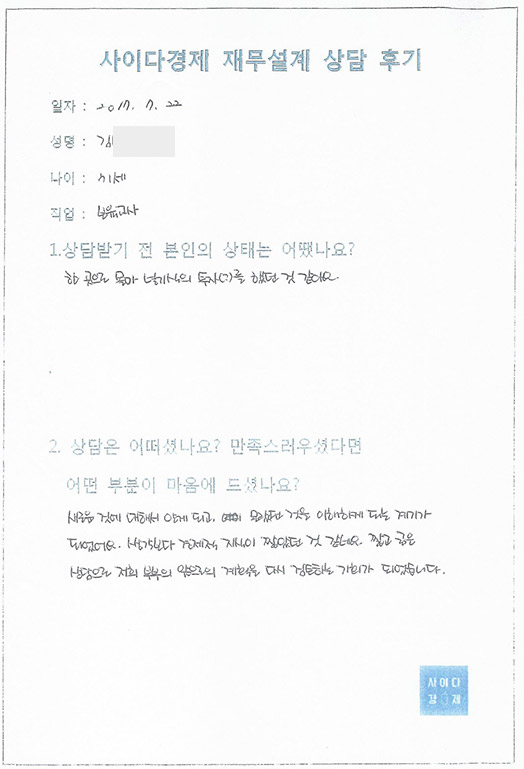 사이다경제 재무설계 상담 후기
일자 : 2017. 7. 22
성명 : 김
나이 :
직업 : 보육교사
1.상담받기 전 본인의 상태는 어땠나요?
한 곳으로 몰아 넣기식의 투자(?)를 했던 것 같아요.
2. 상담은 어떠셨나요? 만족스러우셨다면
어떤 부분이 마음에 드셨나요?
새로운 것에 대해서 알게 되고, 몰랐던 것을 이해하게 되는 계기가
되었어요. 생각보다 경제적 지식이 짧았던 것 같네요. 짧고 굵은
상담으로 저희 부부의 앞으로의 계획을 다시 검토하는 기회가 되었습니다.
사이다
경제